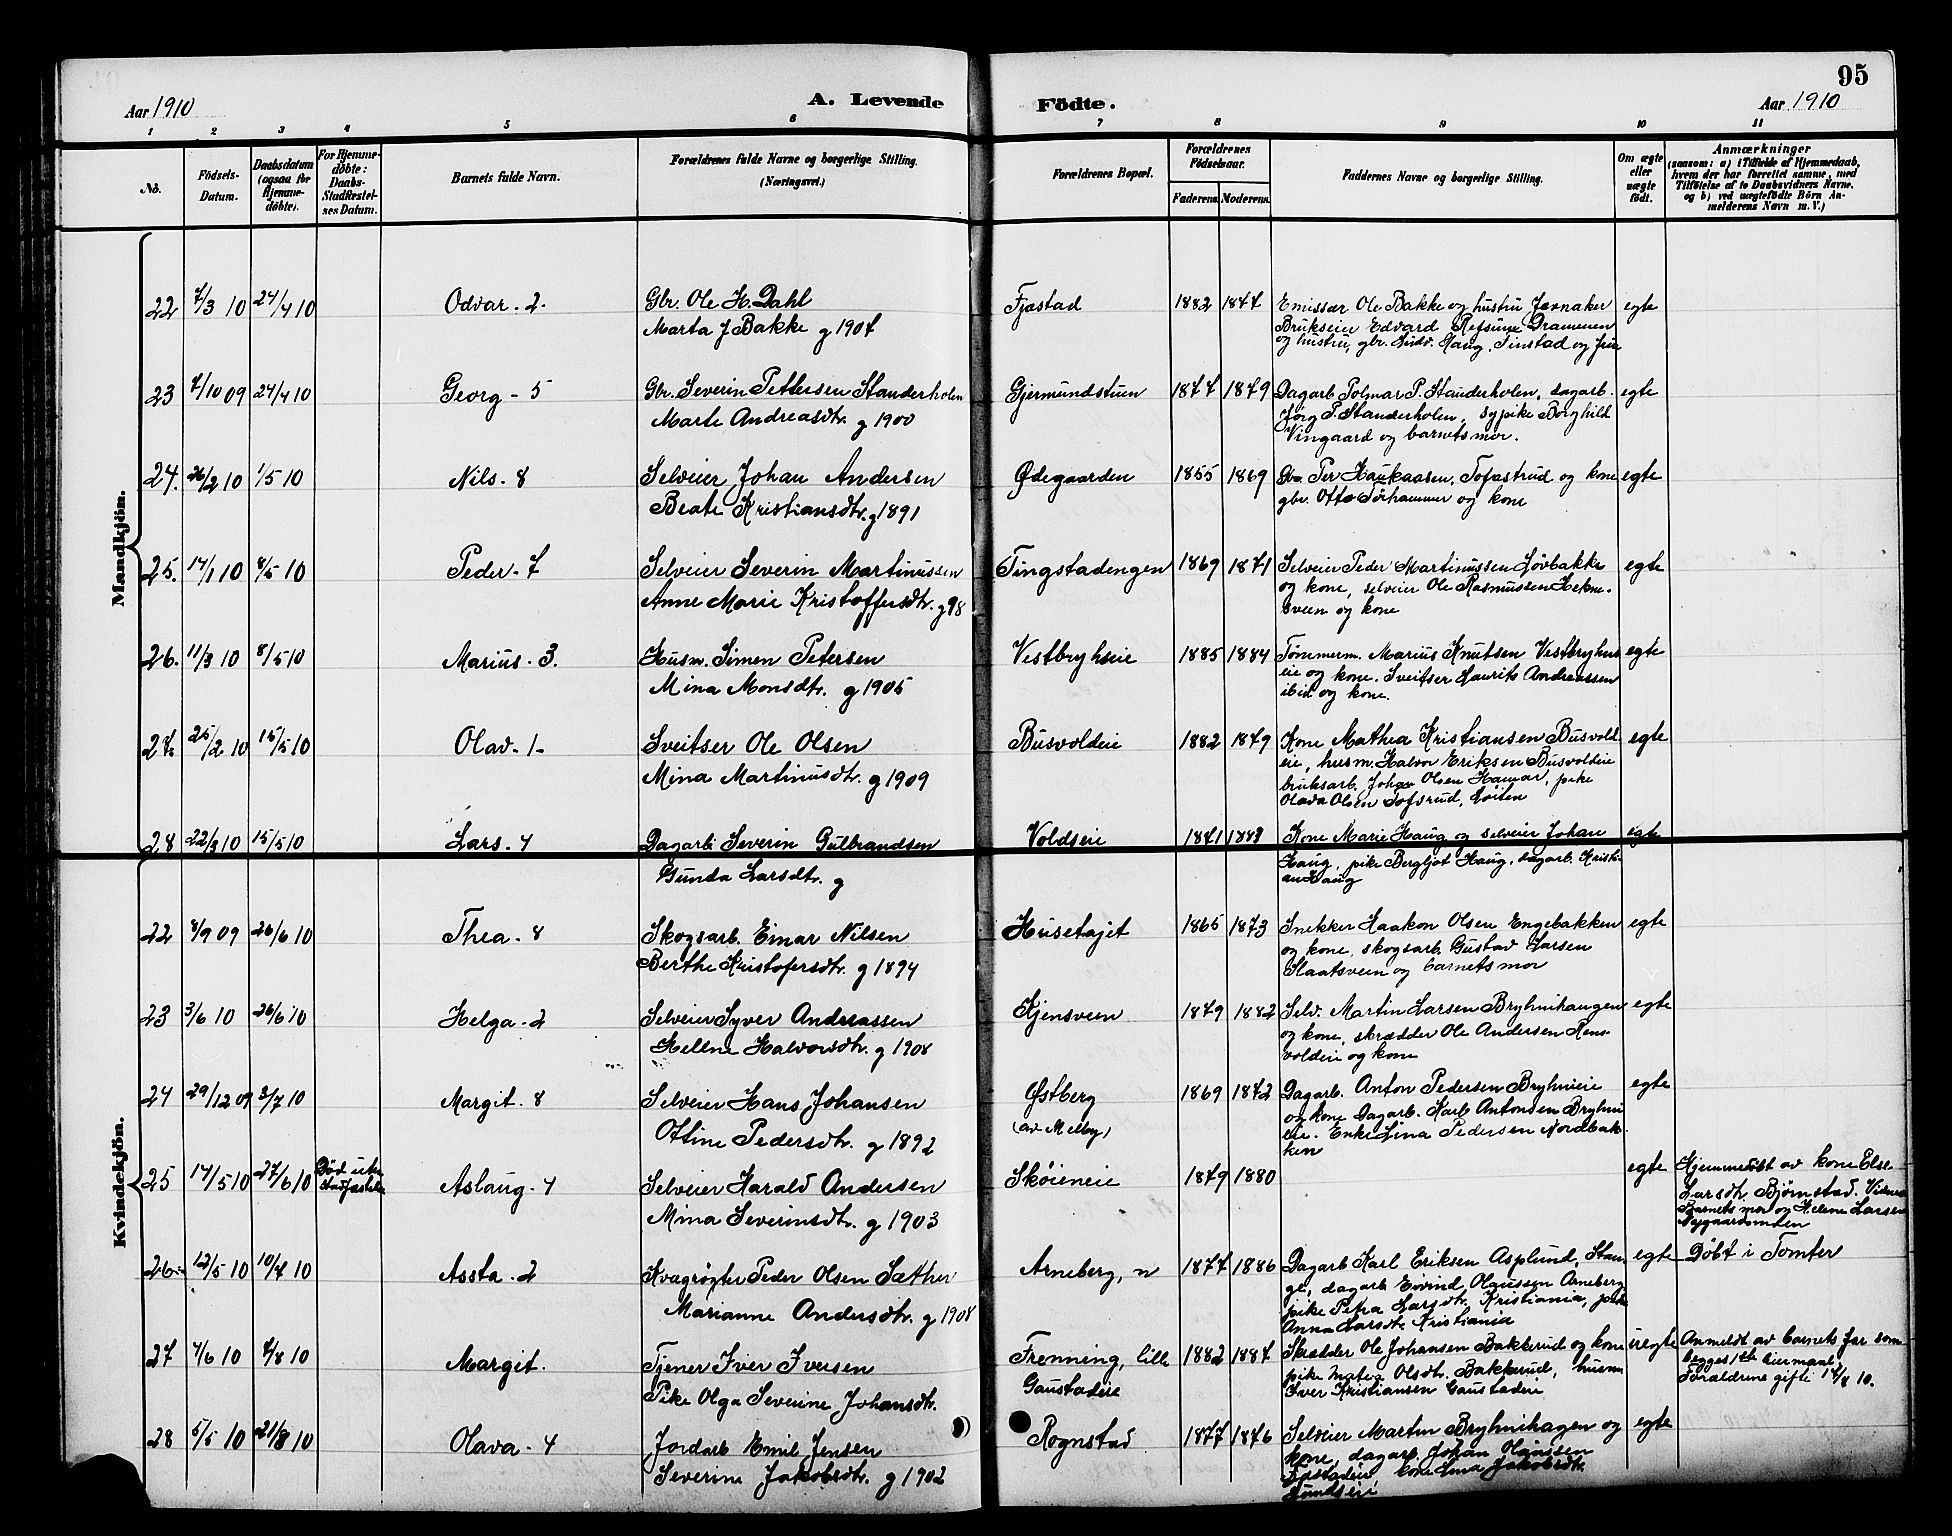 95
Aar 1910
A. Levende
Födte.
Aar 1910
1 2 3 4 5 6 7 8 9 10 11
No.
Födsels-
Datum.
Daabsdatum
(ogsaa for
Hjemme-
döbte).
For Hjemme-
döbte:
Daabs-
Stadfæstel-
ses Datum.
Barnets fulde Navn.
Forældrenes fulde Navne og borgerlige Stilling.
(Næringsvei.)
Forældrenes Bopæl.
Forældrenes
Födselsaar.
Faderens.
Moderens.
Faddernes Navne og borgerlige Stilling.
Om ægte
eller
uægte
födt.
Anmærkninger
(saasom: a) i Tilfælde af Hjemmedaab,
hvem der har forrettet samme, med
Tilföielse af to Daabsvidners Navne,
og b) ved uægtefödte Börn An-
melderens Navn m. V.)
Mandkjön.
22 7/3 10 24/4 10 Odvar - 2. Gbr. Ole H. Dahl Fjæstad 1882 1877 Emissær Ole Bakke og hustru Jevnaker egte
Marta J Bakke g 1907 Brukseier Edvard Refsum Drammen
og hustru, gbr. Haug, Tinstad og frue
23 7/10 09 24/4 10 Georg - 5 Gbr. Severin Pettersen Standerholen Gjermundstuen 1877 1879 Dagarb. Tolmar P. Standerholen, dagarb. egte
Marte Andreasdtr. g 1900 Jørg P. Standerholen, sypike Borghild
Vingaard og barnets mor.
24. 26/2 10 1/5 10 Nils - 8 Selveier Johan Andersen Ødegaarden 1855 1869 Gbr. Per Haukaasen, Tofastrud og kone egte
Beate Kristiansdtr. g 1891 gbr. Otto Sørhammer og kone
25. 14/1 10 8/5 10 Peder - 7 Selveier Severin Martinussen Tingstadengen 1869 1871 Selveier Peder Martinussen Løvbakke egte
Anne Marie Kristoffersdtr. g 98 og kone, selveier Ole Rasmussen Hekne-
sveen og kone
26. 11/3 10 8/5 10 Marius - 3. Husm. Simen Petersen Vestbryhseie 1885 1884 Tømmerm. Marius Knutsen Vestbryhns egte
Mina Monsdtr. g 1905 eie og kone. Sveitser Laurits Andreassen
ibid og kone.
27. 25/2 10 15/5 10 Olav - 1 - Sveitser Ole Olsen Busvoldeie 1882 1879 Kone Mathea Kristiansen Busvold egte
Mina Martinusdtr. g 1909 eie, husm. Halvor Eriksen Busvoldeie
bruksarb. Johan Olsen Hamar, pike
Olava Olsen Tofsrud, Løiten
28 22/3 10 15/5 10 Lars - 4 Dagarb. Severin Gulbrandsen Voldseie 1871 1883 Kone Marie Haug og selveier Johan egte
Gunda Larsdtr. g Haug, pike Bergljot Haug, dagarb. Kristi-
an Haug
Kvindekjön.
22 8/9 09 26/6 10 Thea - 8 Skogsarb. Einar Nilsen Husetajet 1865 1873 Snekker Haakon Olsen Engebakken egte
Berthe Kristofersdtr. g 1894 og kone, skogsarb. Gustav Larsen
Slaatsveen og barnets mor
23 3/6 10 26/6 10 Helga - 2 Selveier Syver Andreassen Kjensveen 1879 1882 Selv. Martin Larsen Bryhnihaugen egte
Hellne Halvorsdtr. g 1908 og kone, skrædder Ole Andersen Rens-
voldeie og kone
24 29/12 09 3/7 10 Margit - 8 Selveier Hans Johansen Østberg 1869 1872 Dagarb. Anton Pedersen Bryhnieie egte
Ottine Pedersdtr. g 1892 (av Melby) og kone Dagarb. Karl Antonsen Bryhni
eie. Enke Lina Pedersen Nordbak-
ken
25 14/5 10 27/6 10 Død uten stadfæstelse Aslaug - 4 Selveier Harald Andersen Skøieneie 1879 1880 egte Hjemmedøbt av kone Else
Mina Severinsdtr. g 1903 Larsdtr. Bjørnstad. Vidner
Barnets mor og Helene Larsen
Nygaardomten
26 12/5 10 10/7 10 Assta - 2 Kvægrøgter Peder Olsen Sæther Arneberg, n 1877 1886 Dagarb Karl Eriksen Asplund, Stan- egte Døbt i Tomter
Marianne Andersdtr. g 1908 ge, dagarb Eivind Olaussen Arneberg
pike Petra Larsdtr. Kristiania, pike
Anna Larsdtr. Kristiania
27 4/6 10 7/8 10 Margit. Tjener Iver Iversen Frenning, lille 1882 1887 Skrædder Ole Johansen Bakkerud og kone uegte Anmeldt av barnets far som
Pike Olga Severine Johansdtr. Gaustadeie pike Matea Olsdtr. Bakkerud, husm begges 1ste leiermaal
Iver Kristiansen Gaustadeie Forældrene gifte 14/8 10.
28 5/5 10 21/8 10 Olava - 4 Jordarb Emil Jensen Rognstad 1877 1876 Selveier Martin Bryhnihagen og egte
Severine Jakobsdtr. g 1902 kone, dagarb. Johan Olaussen
Fjæstadeie, kone Lina Jakobsdtr.
Sundseie